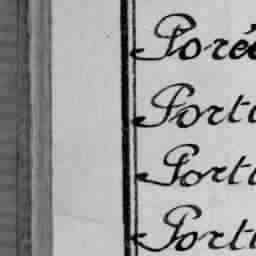 Poré
Port
Port
Port